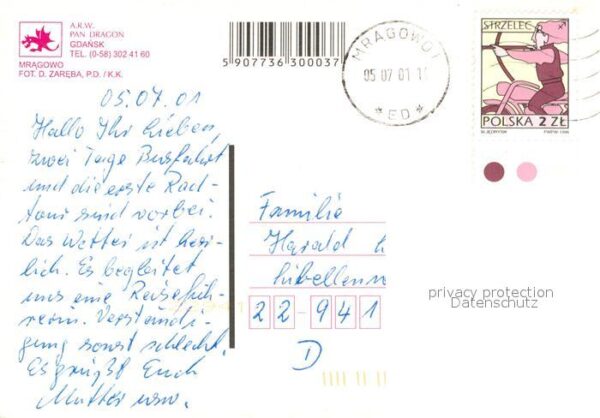 A.R.W.
PAN DRAGON
GDAŃSK
TEL. (0-58) 302 41 60
MRĄGOWO
FOT. D. ZARĘBA, P.D. / K.K.
5 907736 300037
MRĄGOWO 1
05 07 01 1
* ED *
STRZELEC
POLSKA 2 ZŁ
05.07.01
Hallo Ihr Lieben,
zwei Tage Busfahrt
und die erste Rad-
tour sind vorbei.
Das Wetter ist herr-
lich. Es begleitet
uns eine Reisefüh-
rerin. Verständi-
gung sonst schlecht.
Es grüßt Euch
Mutter usw.
Familie
Harald
22-941
D
privacy protection
Datenschutz